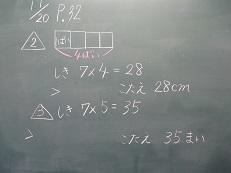 11/20 P.32
2 ばい
4ばい
しき 7×4=28
> こたえ 28cm
3 しき 7×5=35
> こたえ 35まい